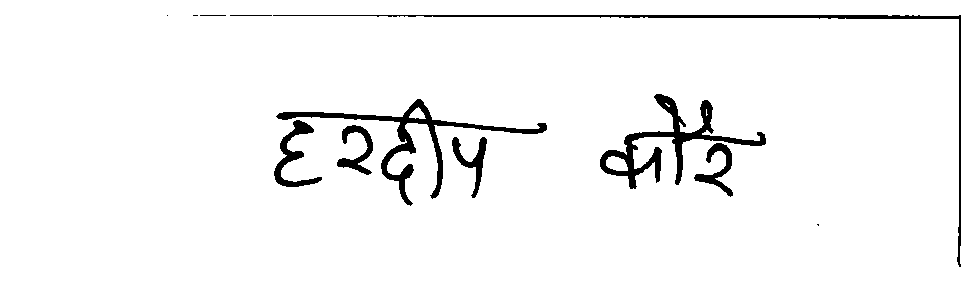 हरदीप कौर